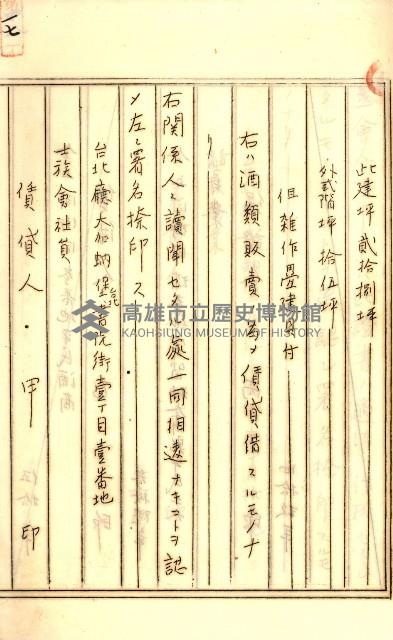 此建坪 貳拾捌坪
外貳階坪 拾伍坪
但雑作畳建具付
右ハ酒類販賣ノ為メ賃貸借スルモノナ
リ
右関係人ニ讀聞セタル處一同相違ナキコトヲ認
メ左ニ署名捺印ス
台北廳大加蚋堡台北
街壹丁目壹番地
士族會社員
賃貸人 甲 印
高雄市立歷史博物館
KAOHSIUNG MUSEUM OF HISTORY
七